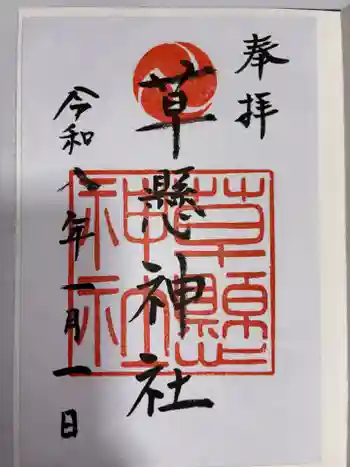 奉拝
草懸神社
令和八年一月一日
草縣神社